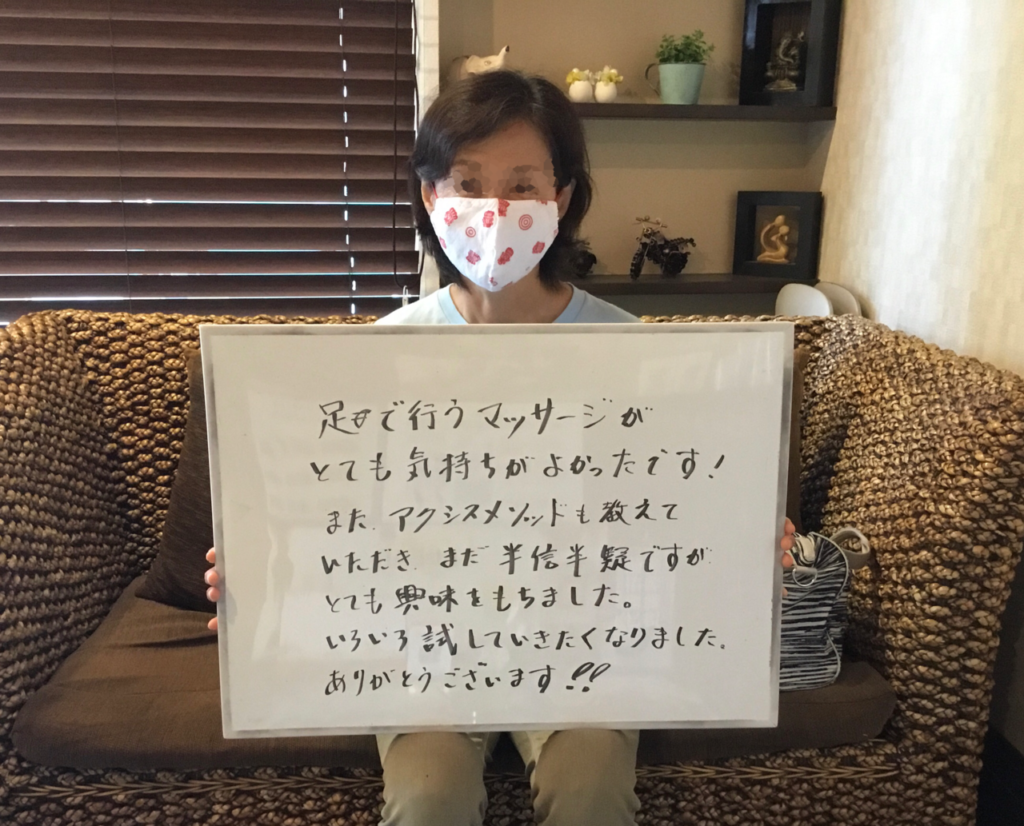 足で行うマッサージが
とても気持ちがよかったです!
また、アクシスメソッドも教えて
いただき、まだ半信半疑ですが
とても興味をもちました。
いろいろ試していきたくなりました。
ありがとうございます!!